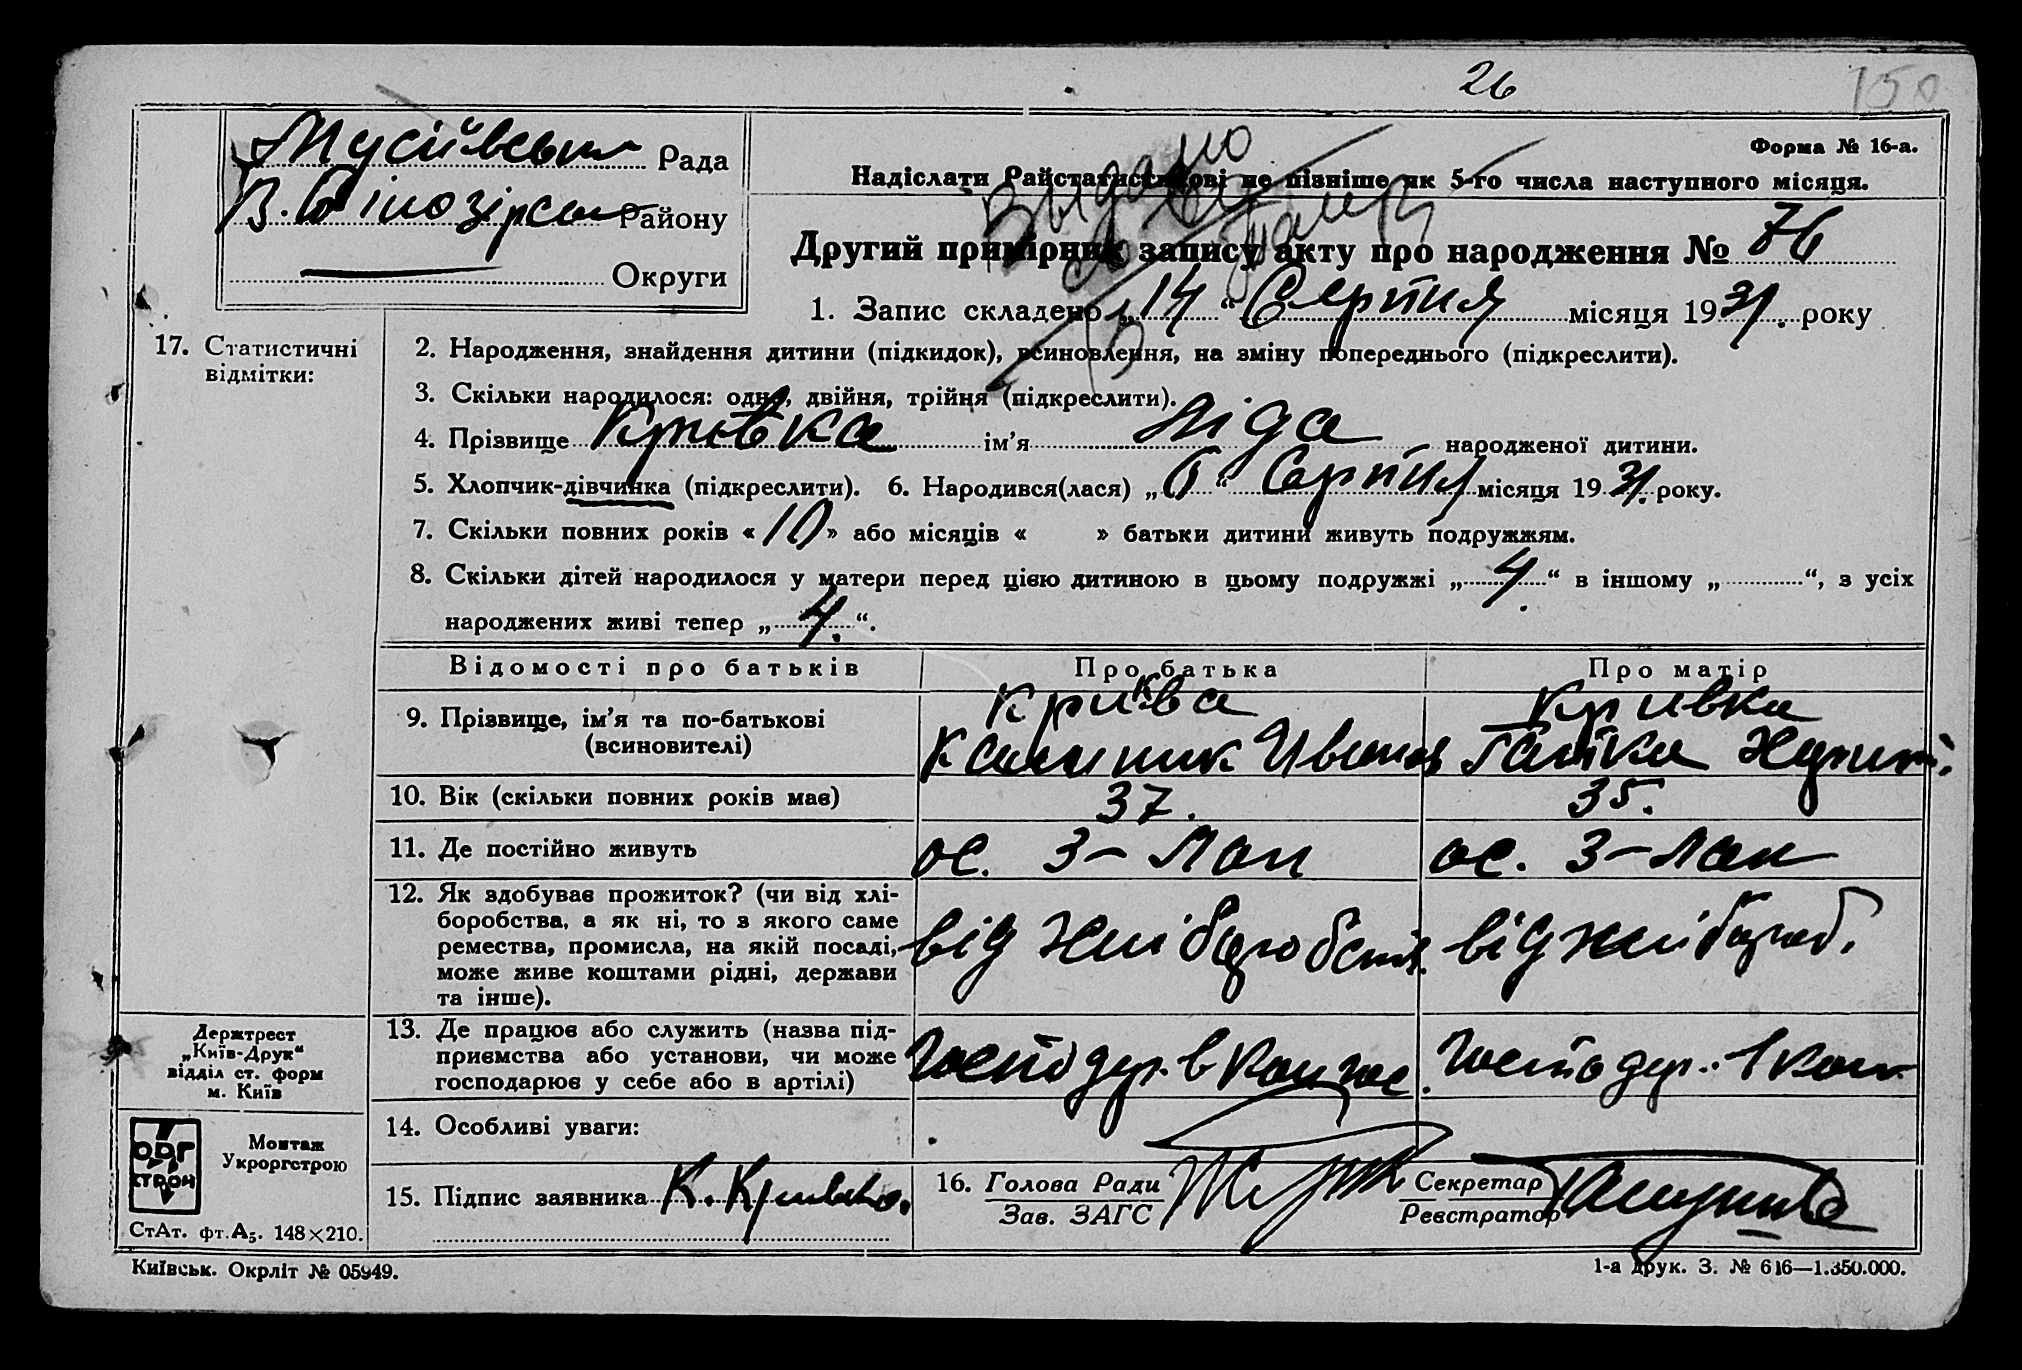 26
150
Мусіївськ Рада
В. Білозірськ Району
Округи
Форма № 16-а.
Надіслати Райстатистикові не пізніше як 5-го числа наступного місяця.
Видано
Другий примірник запису акту про народження № 76
1. Запис складено „14“ Серпня місяця 1931. року
17. Статистичні
відмітки:
2. Народження, знайдення дитини (підкидок), всиновлення, на зміну попереднього (підкреслити).
3. Скільки народилося: одне, двійня, трійня (підкреслити).
4. Прізвище Кривка ім’я Ліда народженої дитини.
5. Хлопчик-дівчинка (підкреслити). 6. Народився(лася) „6“ Серпня місяця 1931. року.
7. Скільки повних років «10» або місяців « » батьки дитини живуть подружжям.
8. Скільки дітей народилося у матери перед цією дитиною в цьому подружжі „4.“ в іншому „ “, з усіх
народжених живі тепер „4.“.
Відомості про батьків Про батька Про матір
9. Прізвище, ім’я та по-батькові
(всиновителі)
Кривка Кривка
Калиник Иванов
10. Вік (скільки повних років має) 37. 35.
11. Де постійно живуть ос. 3-Лан ос. 3-Лан
12. Як здобуває прожиток? (чи від хлі-
боробства, а як ні, то з якого саме
ремества, промисла, на якій посаді,
може живе коштами рідні, держави
та інше).
від хліборобств. від хлібороб.
13. Де працює або служить (назва під-
приємства або установи, чи може
господарює у себе або в артілі)
Господар. в колгос. Господар. в кол.
14. Особливі уваги:
15. Підпис заявника К. Кривка.
16. Голова Ради
Зав. ЗАГС
Секретар
Реєстратор
Держтрест
„Київ-Друк“
відділ ст. форм
м. Київ
ОРГ
СТРОЙ
Монтаж
Укроргстрою
СтАт. фт.А₅. 148×210.
Київськ. Окрліт № 05949.
1-а друк. З. № 616—1.350.000.